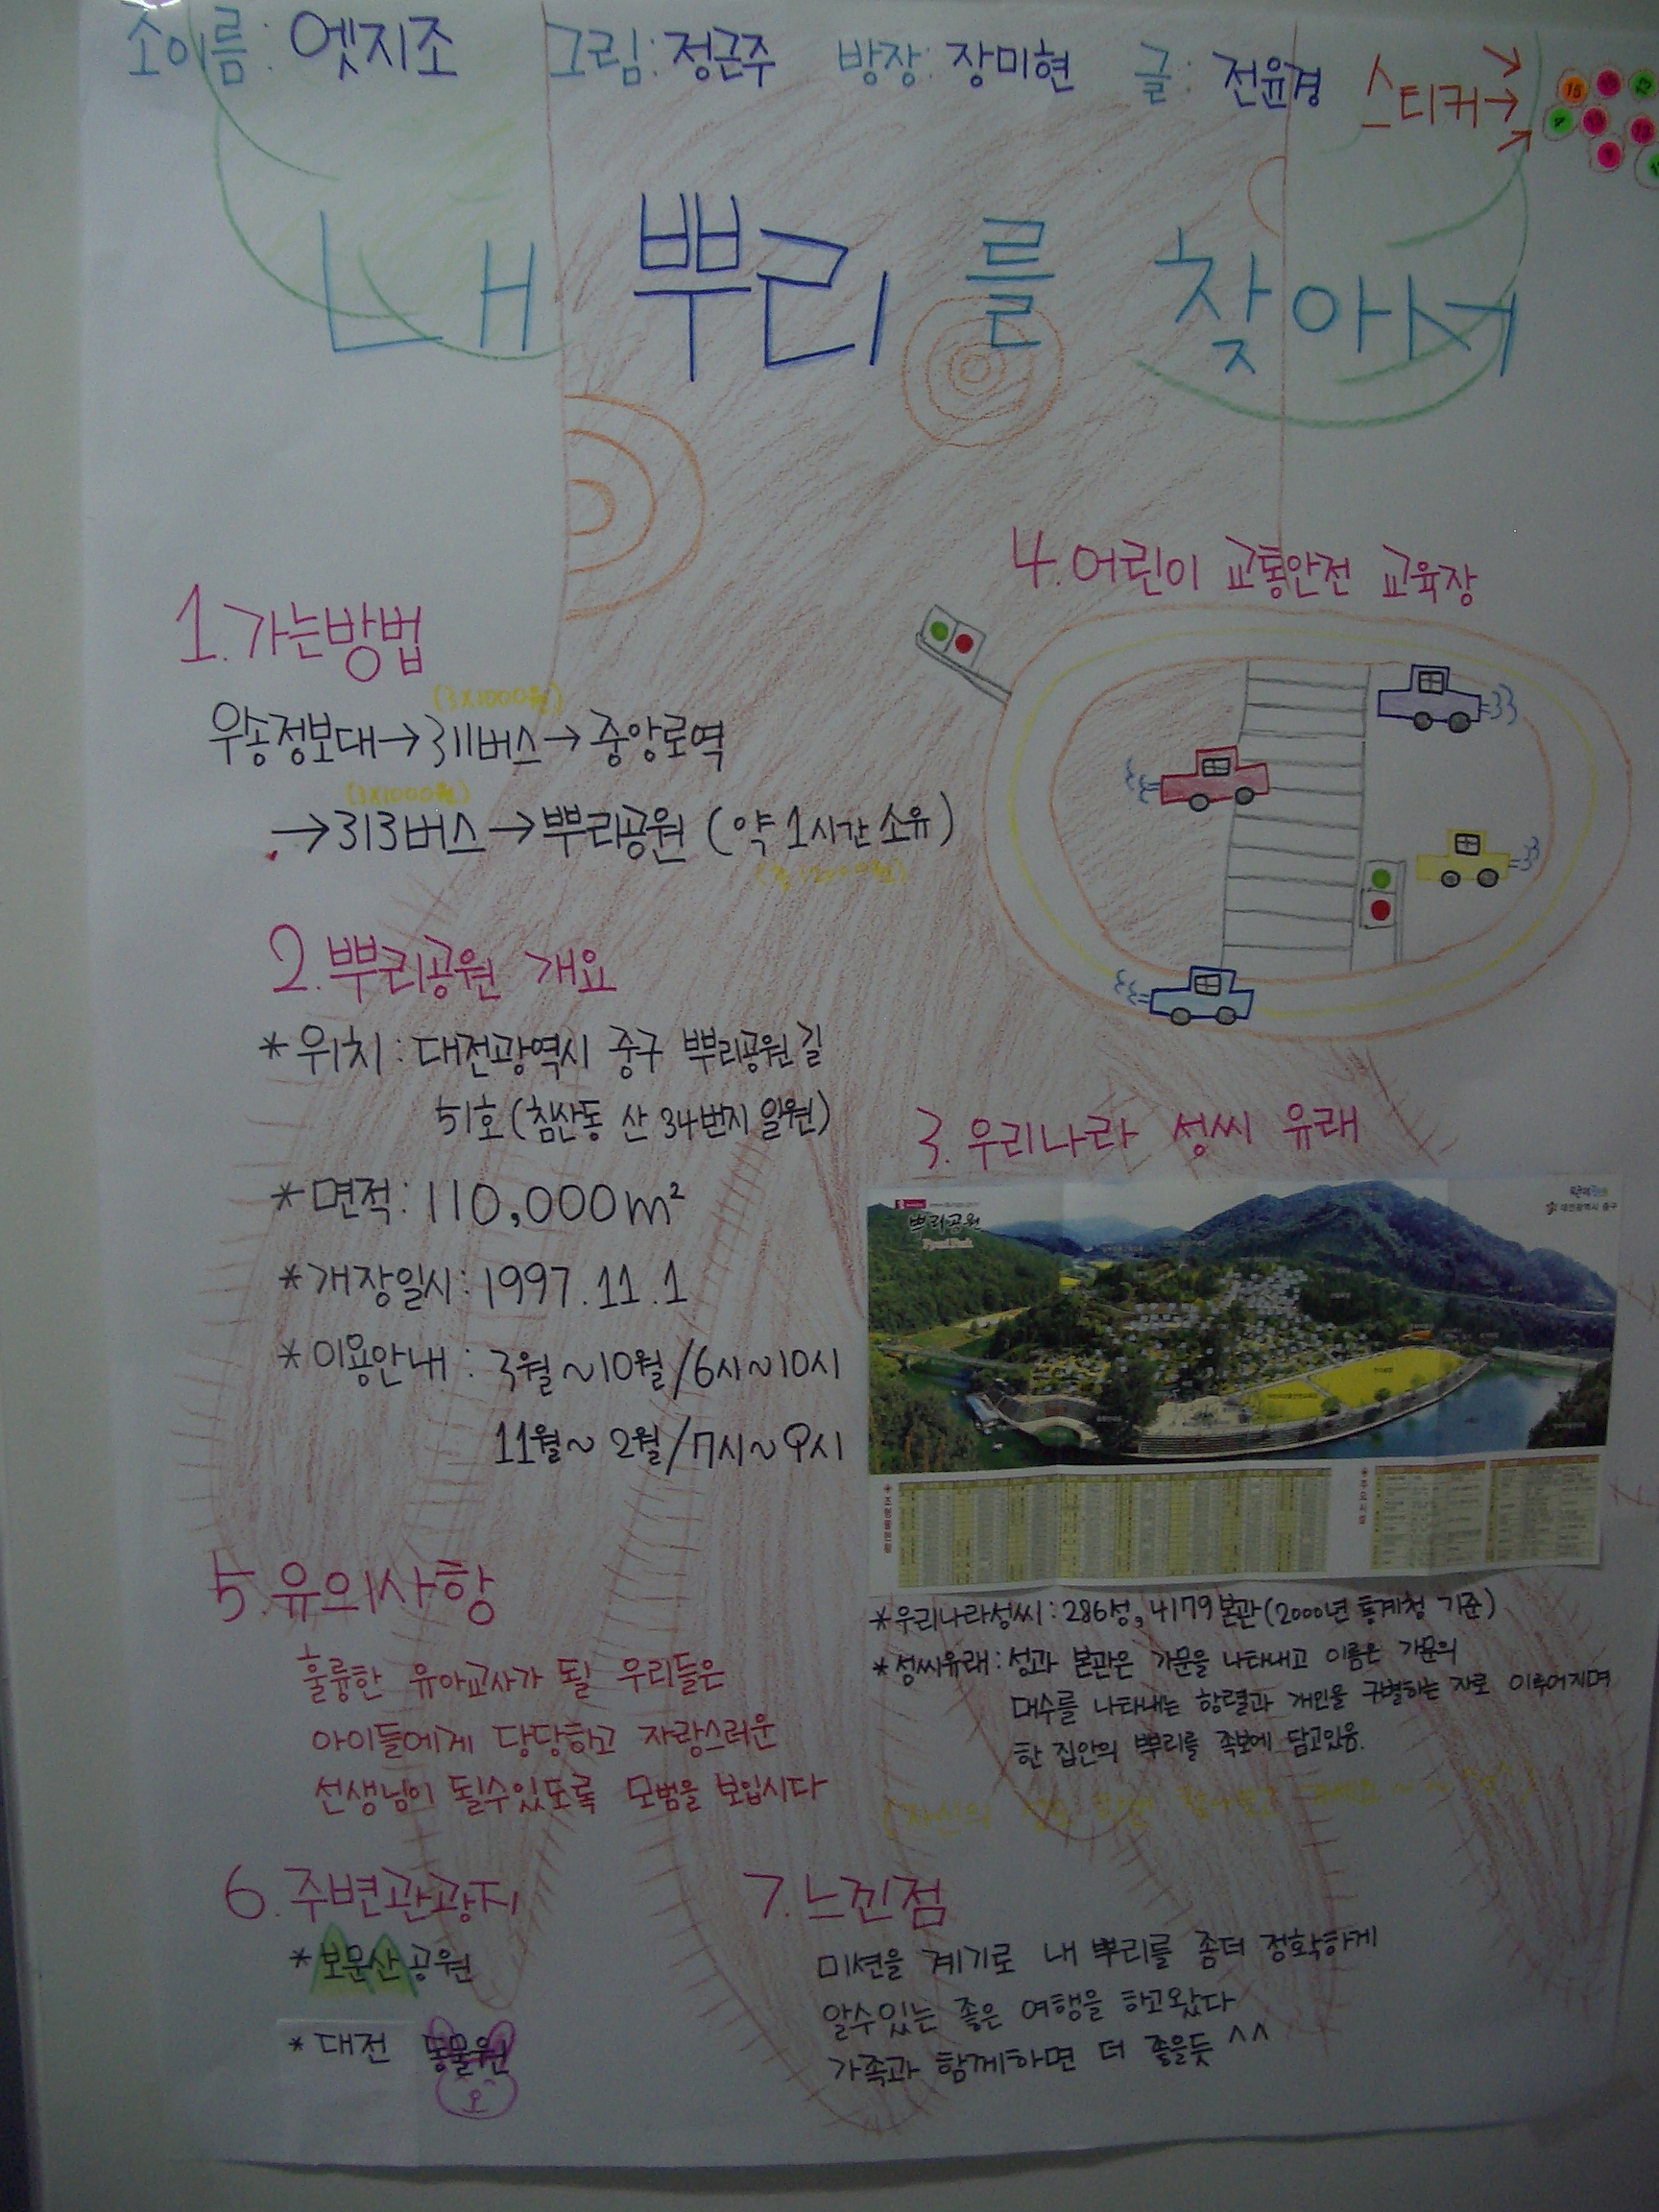 조이름: 엣지조 그림: 정근주 방장: 장미현 글: 전윤경 스티커→
내 뿌리를 찾아서
1. 가는방법
(3X1000원)
우송정보대→311버스→중앙로역
(3X1000원)
→313버스→뿌리공원 (약 1시간 소유)
2. 뿌리공원 개요
* 위치: 대전광역시 중구 뿌리공원길
51호(침산동 산 34번지 일원)
* 면적: 110,000m²
* 개장일시: 1997.11.1
* 이용안내: 3월~10월/6시~10시
11월~2월/7시~9시
4. 어린이 교통안전 교육장
3. 우리나라 성씨 유래
뿌리공원
대전광역시 중구
* 우리나라성씨: 286성, 4179본관(2000년 통계청 기준)
* 성씨유래: 성과 본관은 가문을 나타내고 이름은 가문의
대수를 나타내는 항렬과 개인을 구별하는 자로 이루어지며
한 집안의 뿌리를 족보에 담고있음.
5. 유의사항
훌륭한 유아교사가 될 우리들은
아이들에게 당당하고 자랑스러운
선생님이 될수있도록 모범을 보입시다
6. 주변관광지
* 보문산공원
* 대전 동물원
7. 느낀점
미션을 계기로 내 뿌리를 좀더 정확하게
알수있는 좋은 여행을 하고왔다
가족과 함께하면 더 좋을듯 ^^